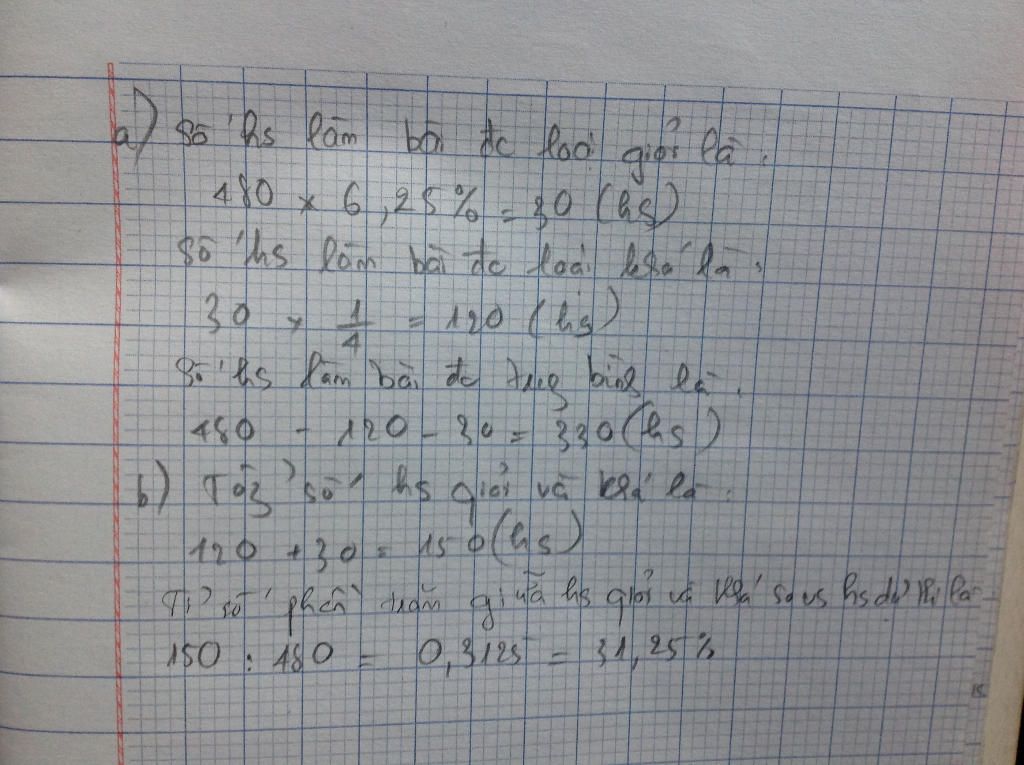 a) Số hs làm bài đc loại giỏi là :
480 x 6,25% = 30 (hs)
Số hs làm bài đc loại khá là :
30 x 1/4 = 120 (hs)
Số hs làm bài đc trug bình là :
480 - 120 - 30 = 330 (hs)
b) Tổg số hs giỏi và khá là :
120 + 30 = 150 (hs)
Tỉ số phần trăm giữa hs giỏi và khá so vs hs dự thi là
150 : 480 = 0,3125 = 31,25%